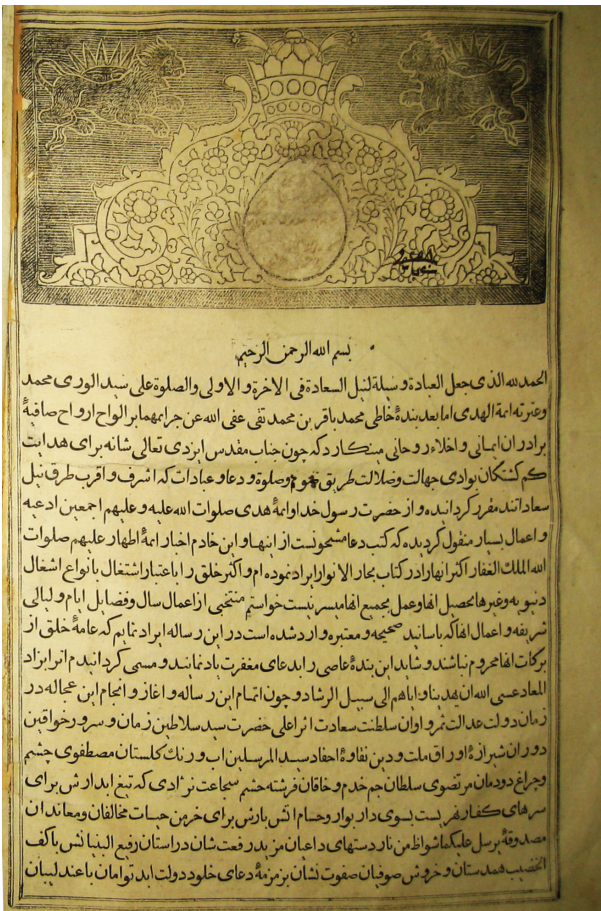 بسم الله الرحمن الرحيم
الحمد لله الذی جعل العبادة وسیلة لنیل السعادة فی الاخرة و الاولی والصلوة علی سید الوری محمد
وعترته ائمة الهدی اما بعد بندۀ خاطی محمد باقر بن محمد تقی عفی الله عن جرائمهما بر الواح ارواح صافیۀ
برادران ایمانی و اخلاء روحانی مینکارد که چون جناب مقدس ایزدی تعالی شانه برای هدایت
کم کشتکان بوادی جهالت وضلالت طریق وصلوة ودعا وعبادات که اشرف و اقرب طرق نیل
سعاداتند مقرر کردانیده و از حضرت رسول خدا و ائمۀ هدی صلوات الله علیه و علیهم اجمعین ادعیه
و اعمال بسیار منقول کردیده که کتب دعا مشحونست از اینها و این خادم اخبار ائمۀ اطهار علیهم صلوات
الله الملک الغفار اکثر انها را در کتاب بحار الانوار ایراد نموده ام و اکثر خلق را باعتبار اشتغال بانواع اشغال
دنیویه وغیرها تحصیل انها وعمل بجمیع انها میسر نیست خواستم منتخبی از اعمال سال وفضایل ایام و لیالی
شریفه و اعمال انها که باسانید صحیحه و معتبره وارد شده است در این رساله ایراد نمایم که عامۀ خلق از
برکات انها محروم نباشند و شاید این بندۀ عاصی را بدعای مغفرت یاد نمایند و مسمی کردانیدم انرا بزاد
المعاد عسی الله ان یهدینا و ایاهم الی سبیل الرشاد و چون اتمام این رساله و اغاز و انجام این عجاله در
زمان دولت عدالت و اوان سلطنت سعادت اعلی حضرت سید سلاطین زمان و سرور خواقین
دوران شیرازۀ اوراق ملت و دین نقاوۀ احفاد سید المرسلین اب و رنک کلستان مصطفوی چشم
وچراغ دودمان مرتضوی سلطان جم خدم و خاقان فرشته حشم شجاعت نژادی که تیغ ابدارش برای
سرهای کفار بسوی دار بوار وحسام اتش بارش برای خرمن حیات مخالفان ومعاندان
مصدوقۀ یرسل علیکما شواظ من نار دستهای داعیان مزید رفعت شان در استان رفیع البنیانش با کف
الخضیب همدستان و خروش صوفیان صفوت نشان بزمزمۀ دعای خلود دولت ابد توامان با عندلیبان